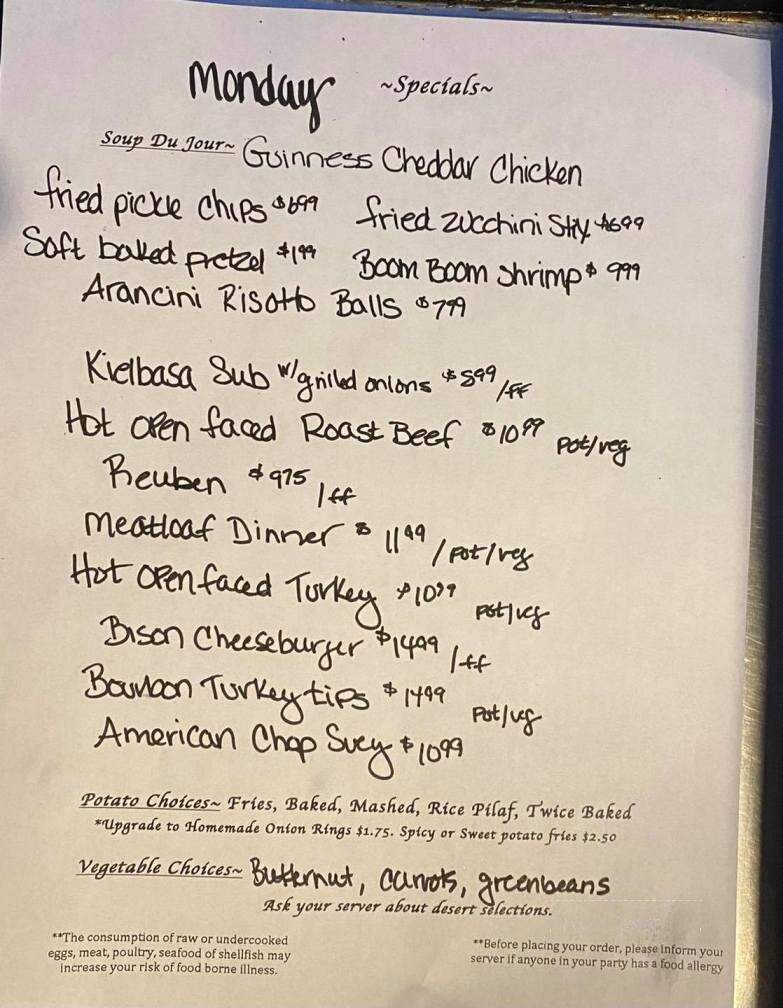 Monday ~Specials~
Soup Du Jour~ Guinness Cheddar Chicken
fried pickle chips $699 fried zucchini Stix $699
Soft baked pretzel $199 Boom Boom shrimp $999
Arancini Risotto Balls $799
Kielbasa Sub w/grilled onions $899/ff
Hot open faced Roast Beef $1099 pot/veg
Reuben $975/ff
Meatloaf Dinner $1199/pot/veg
Hot open faced Turkey $1099 pot/veg
Bison Cheeseburger $1499/ff
Bourbon Turkey tips $1499 pot/veg
American Chop Suey $1099
Potato Choices~ Fries, Baked, Mashed, Rice Pilaf, Twice Baked
*Upgrade to Homemade Onion Rings $1.75. Spicy or Sweet potato fries $2.50
Vegetable Choices~ Butternut, carrots, greenbeans
Ask your server about desert selections.
**The consumption of raw or undercooked
eggs, meat, poultry, seafood of shellfish may
increase your risk of food borne illness.
**Before placing your order, please inform your
server if anyone in your party has a food allergy